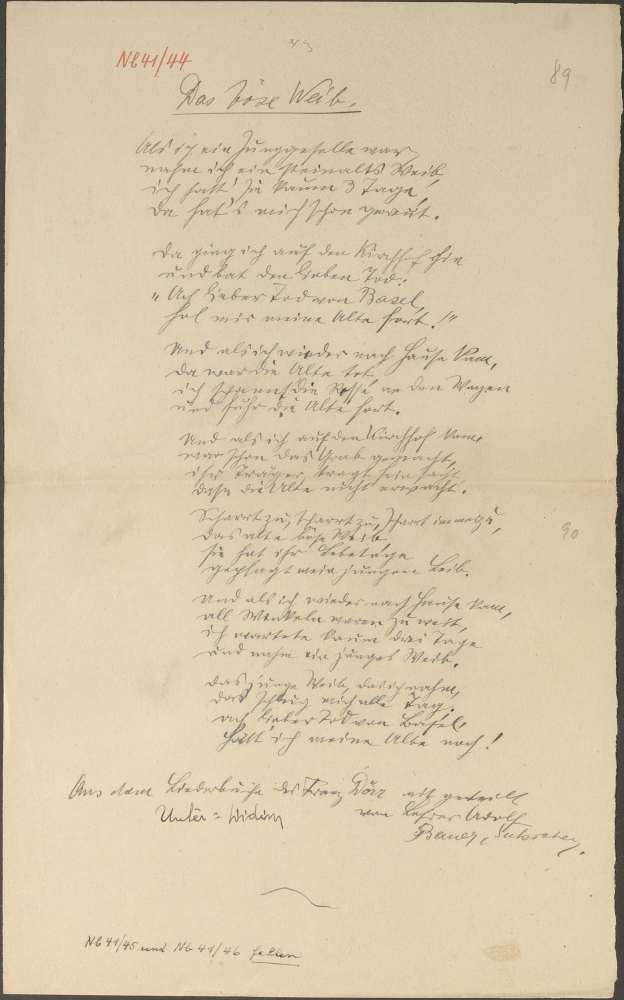 NB 41/44
89
Das böse Weib.
Als ich ein Junggeselle war,
nahm ich ein steinalts Weib,
ich hatt' sie kaum 3 Tage,
da hat's mich schon gereut.
Da ging ich auf den Kirchhof hin
und bat den lieben Tod:
"Ach lieber Tod von Basel,
hol mir meine Alte fort!"
Und als ich wieder nach Hause kam,
da war die Alte tot,
ich spannt die Rosse an den Wagen
und fuhr die Alte fort.
Und als ich auf den Kirchhof kam,
war schon das Grab gemacht,
ihr Träger, tragt fein sacht,
dass die Alte nicht erwacht.
Scharrt zu, scharrt zu, scharrt immerzu,
das alte böse Weib,
sie hat ihr Lebetage
geplagt mein jungen Leib.
Und als ich wieder nach Hause kam,
all Winkeln waren zu weit,
ich wartete kaum drei Tage
und nahm ein junges Weib.
Das junge Weib, das ich nahm,
das schlug mich alle Tag.
ach lieber Tod von Basel,
hätt' ich meine Alte noch!
Aus dem Liederbuche des Franz Dörr mitgeteilt
Unter = Widim
von Lehrer Adolf
Bauer,
90
NB 41/45 und NB 41/46 fehlen